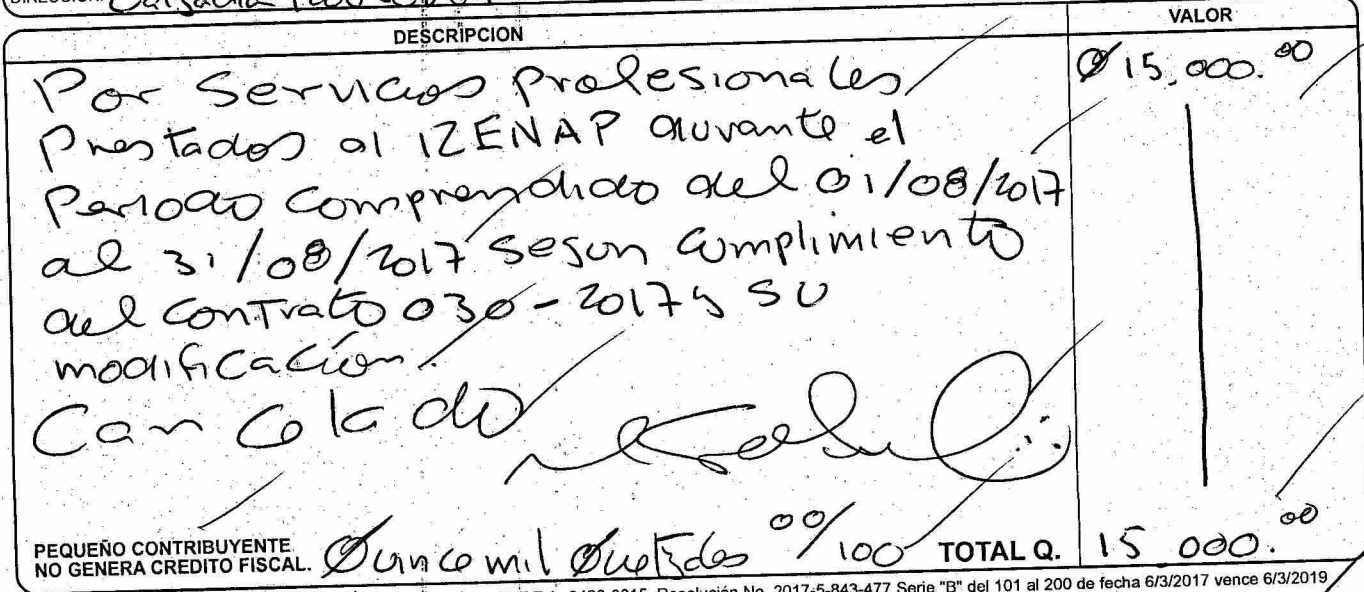 DIRECCION: Calzada
DESCRIPCION
VALOR
Por Servicios Profesionales Q 15,000.00
Prestados al IZENAP durante el
Periodo comprendido del 01/08/2017
al 31/08/2017 segun cumplimiento
del contrato 030-2017 y su
modificación.
Cancelado
PEQUEÑO CONTRIBUYENTE
NO GENERA CREDITO FISCAL. Quince mil Quetzales 00/100 TOTAL Q. 15 000.00
Resolución No. 2017-5-843-477 Serie "B" del 101 al 200 de fecha 6/3/2017 vence 6/3/2019